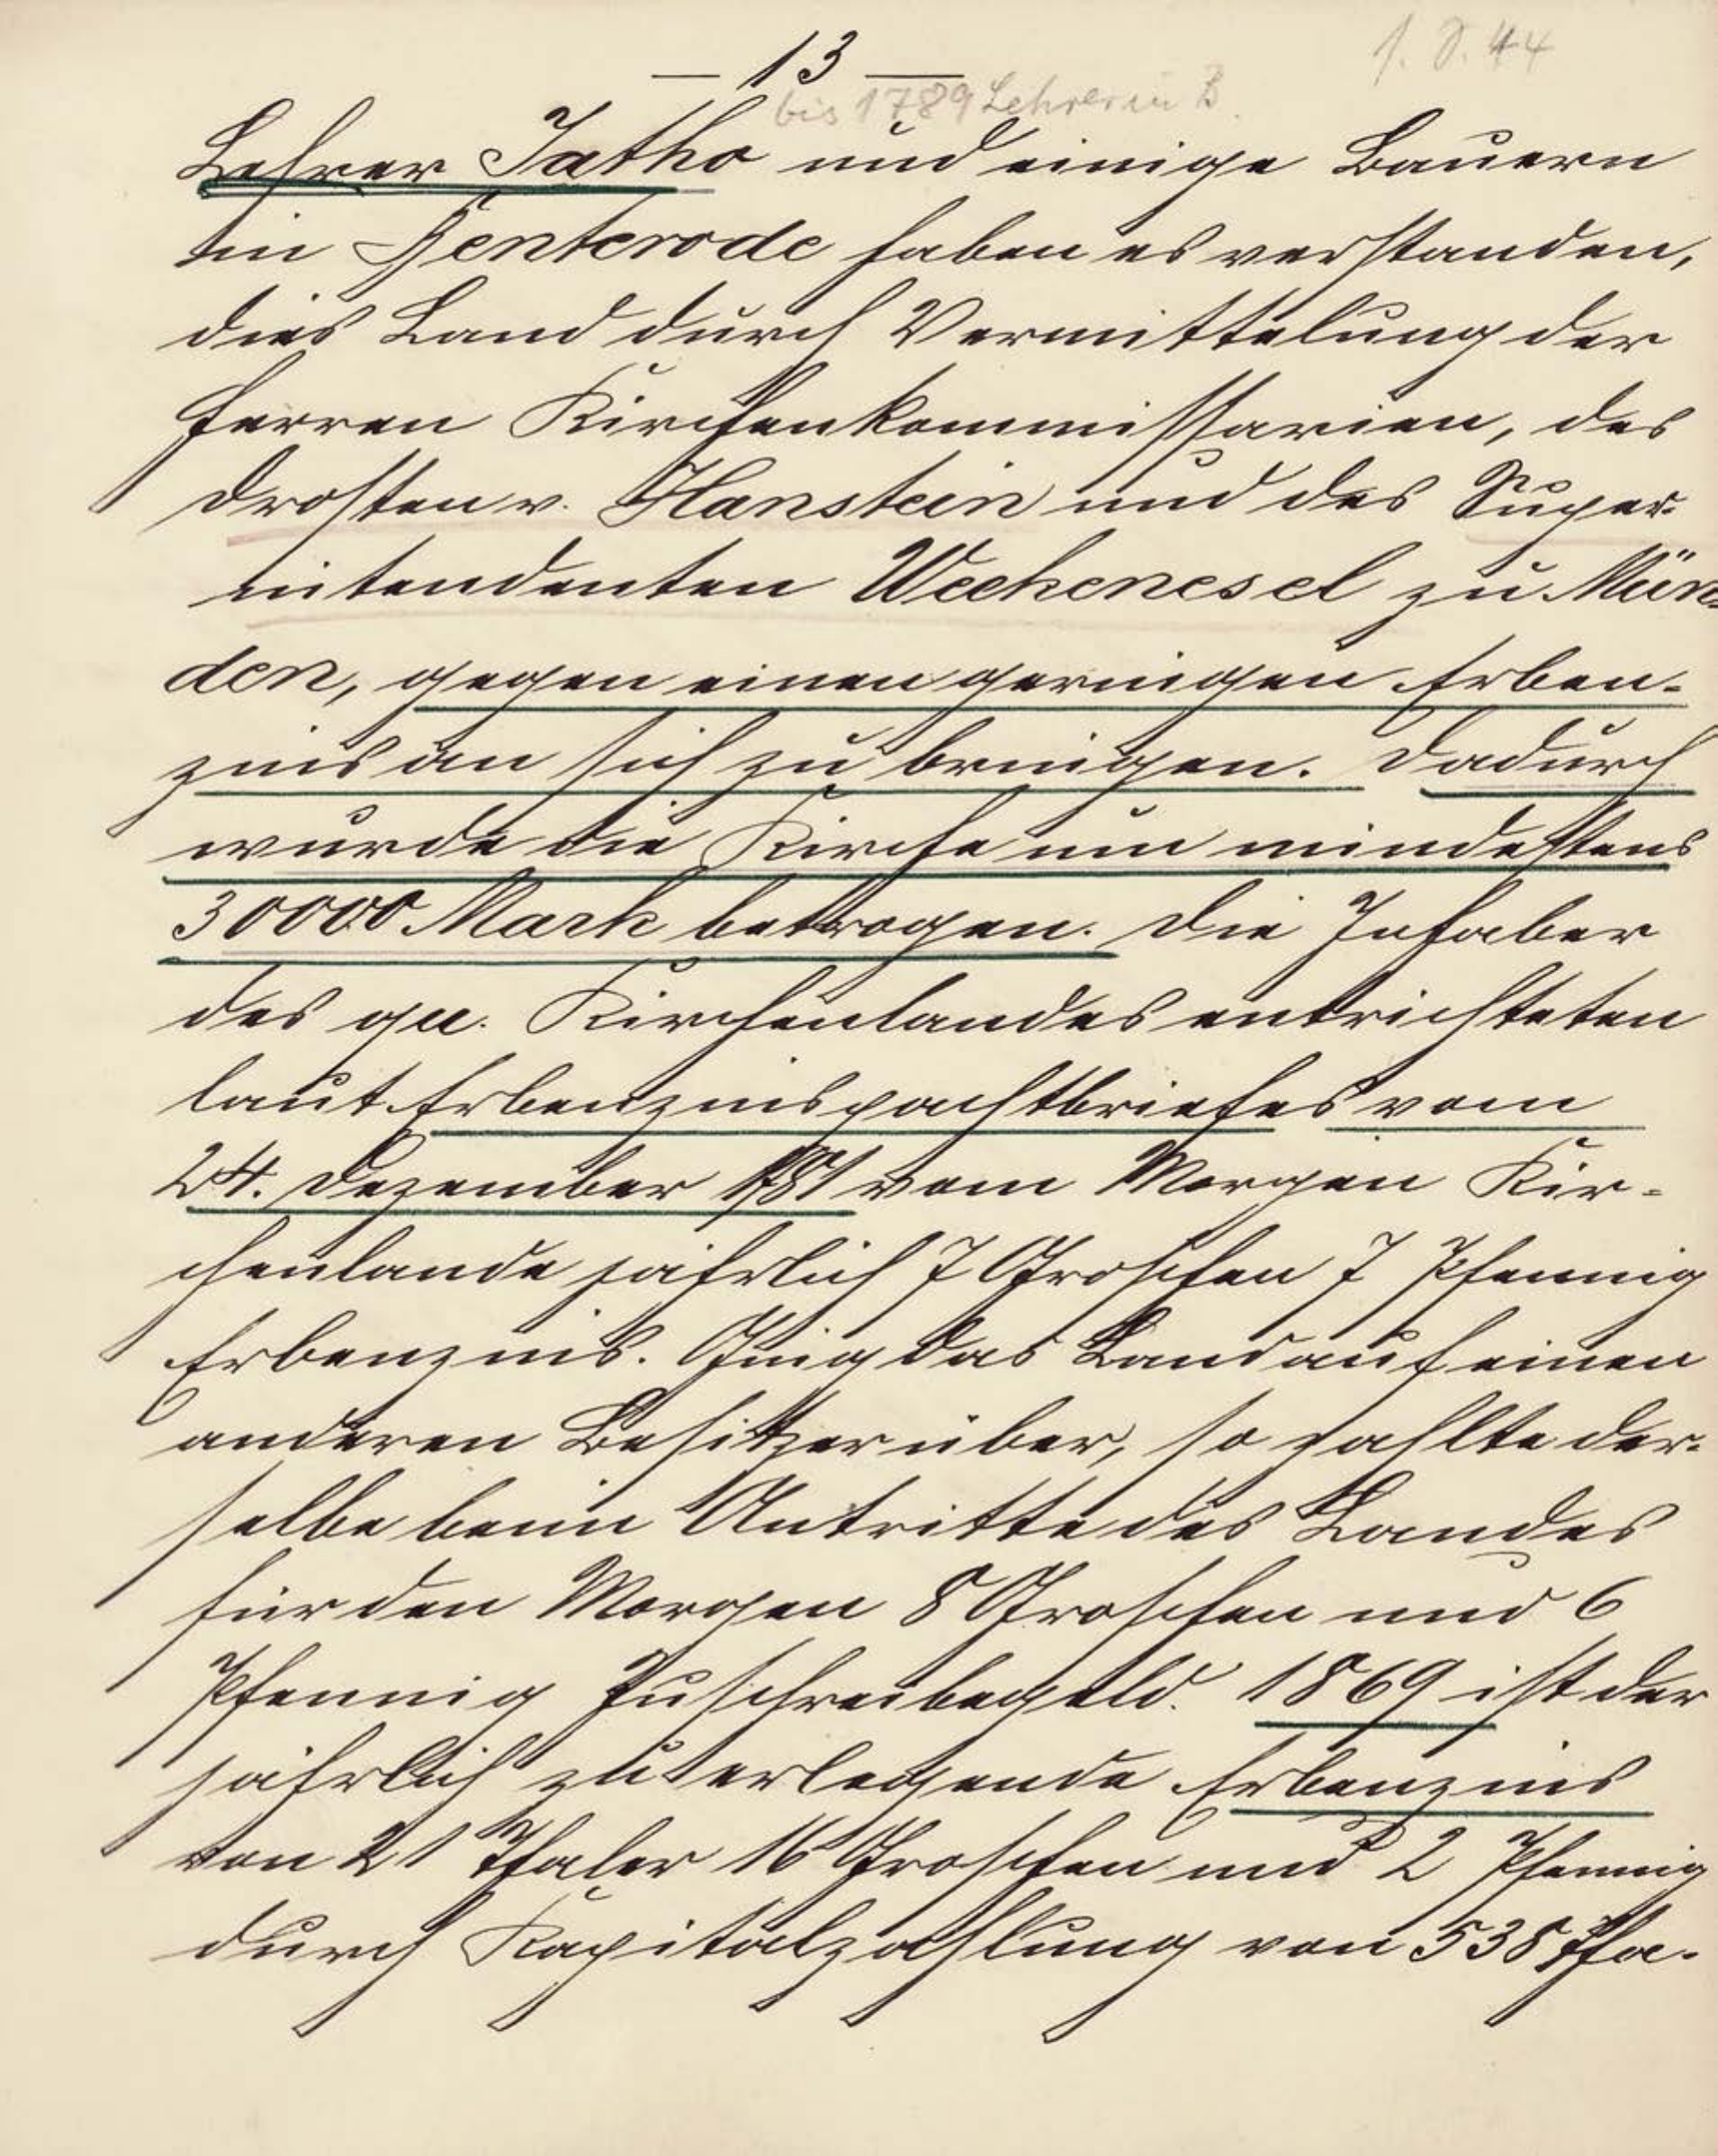 — 13 —
1. D. 44
bis 1789 Lehrer in B.
Lehrer Jatho und einige Bauern
in Genterode haben es verstanden,
dies Land durch Vermittelung der
Herren Kirchenkommissarien, des
Drosten v. Hanstein und des Super-
intendenten Weckenesel zu Mün-
den, gegen einen geringen Erben-
zins an sich zu bringen. Dadurch
wurde die Kirche um mindestens
30000 Mark betrogen. Die Inhaber
des qu. Kirchenlandes entrichteten
laut Erbenzinspachtbriefes vom
24. Dezember 1781 vom Morgen Kir-
chenlande jährlich 7 Groschen 7 Pfennig
Erbenzins. Ging das Land auf einen
anderen Besitzer über, so zahlte der-
selbe beim Antritte des Landes
für den Morgen 8 Groschen und 6
Pfennig Zuschreibegeld. 1869 ist der
jährlich zu erlegende Erbenzins
von 21 Thaler 16 Groschen und 2 Pfennig
durch Kapitalzahlung von 538 Tha-